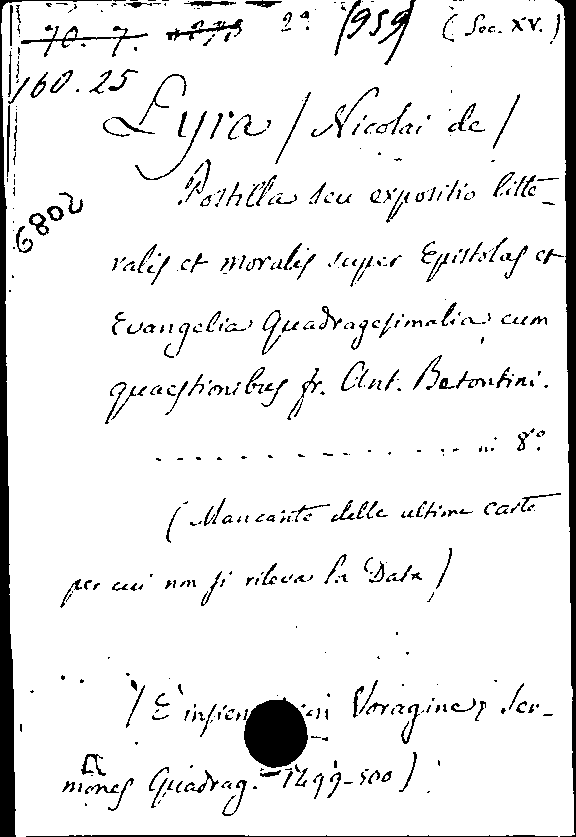 70. 7. 2° (959) (Sec. XV.)
160.25
Lyra / Nicolai de /
6802
Postilla seu expositio litte-
ralis et moralis super Epistolas et
Evangelia Quadragesimalia cum
quaestionibus fr. Ant. Betontini.
. . . . . . . . . . . . . . . in 8°.
(Mancante delle ultime carte
per cui non si rileva la Data)
/ È Voragine, Ser-
mones Quadrag. - 1499-500)